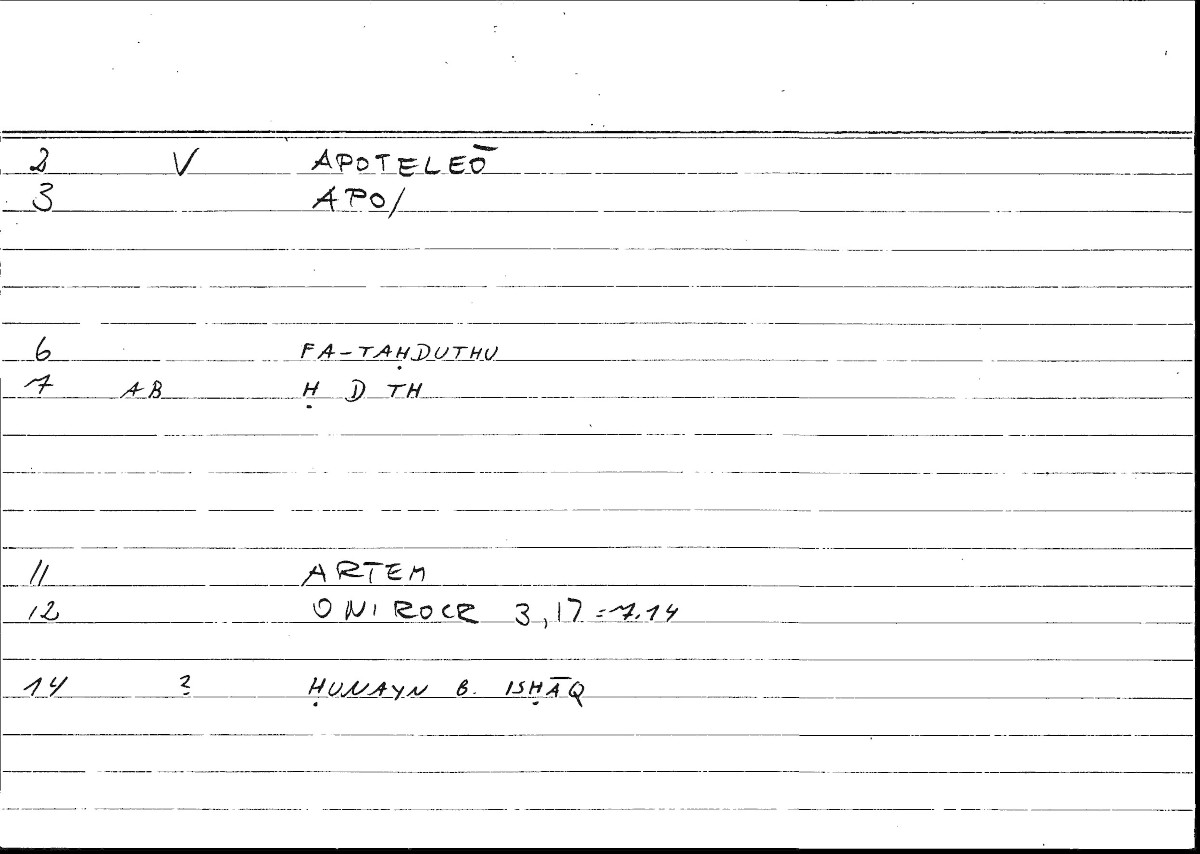 2 V APOTELEŌ
3 APO/
6 FA-TAḤDUTHU
7 AB Ḥ D TH
11 ARTEM
12 ONIROCR 3,17=7.14
14 ? ḤUNAYN B. ISḤĀQ